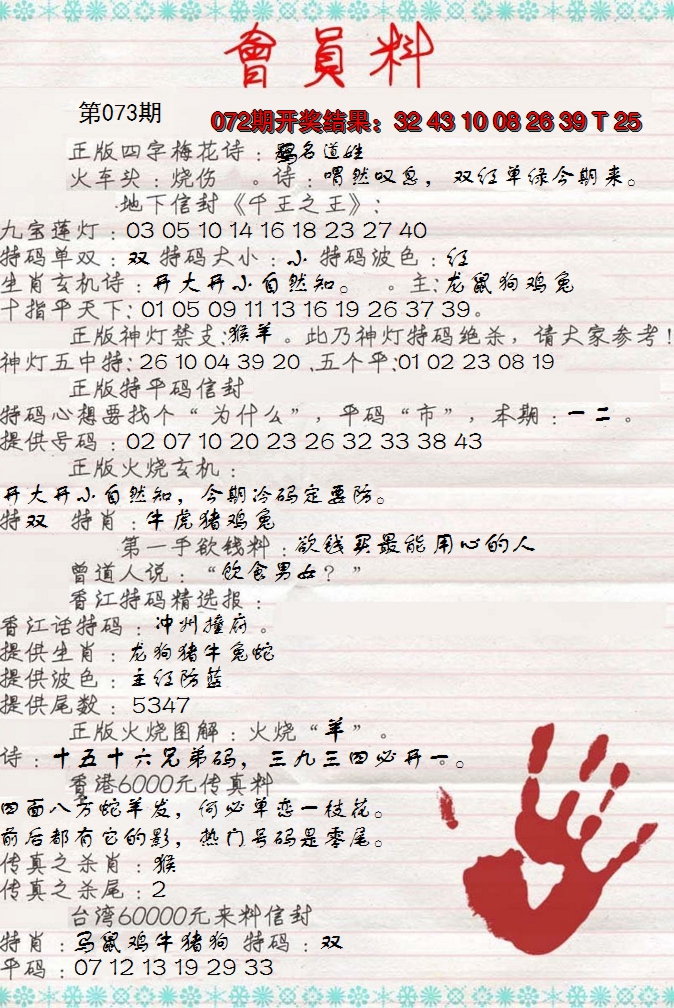 會員料
第073期
072期开奖结果：32 43 10 08 26 39 T 25
正版四字梅花诗：名道姓
火车头：烧伤 。诗：喟然叹息，双红单绿今期来。
地下信封《千王之王》：
九宝莲灯：03 05 10 14 16 18 23 27 40
特码单双：双 特码大小：小 特码波色：红
生肖玄机诗：开大开小自然知。 。主：龙鼠狗鸡兔
十指平天下：01 05 09 11 13 16 19 26 37 39。
正版神灯禁支：猴羊 。此乃神灯特码绝杀，请大家参考！
神灯五中特：26 10 04 39 20 .五个平：01 02 23 08 19
正版特平码信封
特码心想要找个“为什么”，平码“市”，本期：一二 。
提供号码：02 07 10 20 23 26 32 33 38 43
正版火烧玄机：
开大开小自然知，今期冷码定要防。
特双 特肖：牛虎猪鸡兔
第一手欲钱料：欲钱买最能用心的人
曾道人说：“饮食男女？”
香江特码精选报：
香江话特码：冲州撞府 。
提供生肖：龙狗猪牛兔蛇
提供波色：主红防蓝
提供尾数：5347
正版火烧图解：火烧“羊”。
诗：十五十六兄弟码，三九三四必开一。。
香港6000元传真料
四面八方蛇羊发，何必单恋一枝花。
前后都有它的影，热门号码是零尾。
传真之杀肖：猴
传真之杀尾：2
台湾60000元来料信封
特肖：马鼠鸡牛猪狗 特码：双
平码：07 12 13 19 29 33